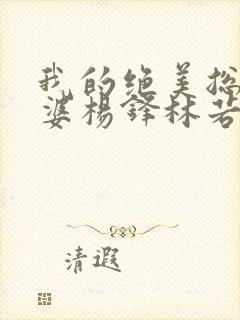 我的绝美总
婆杨铎林若
清遐